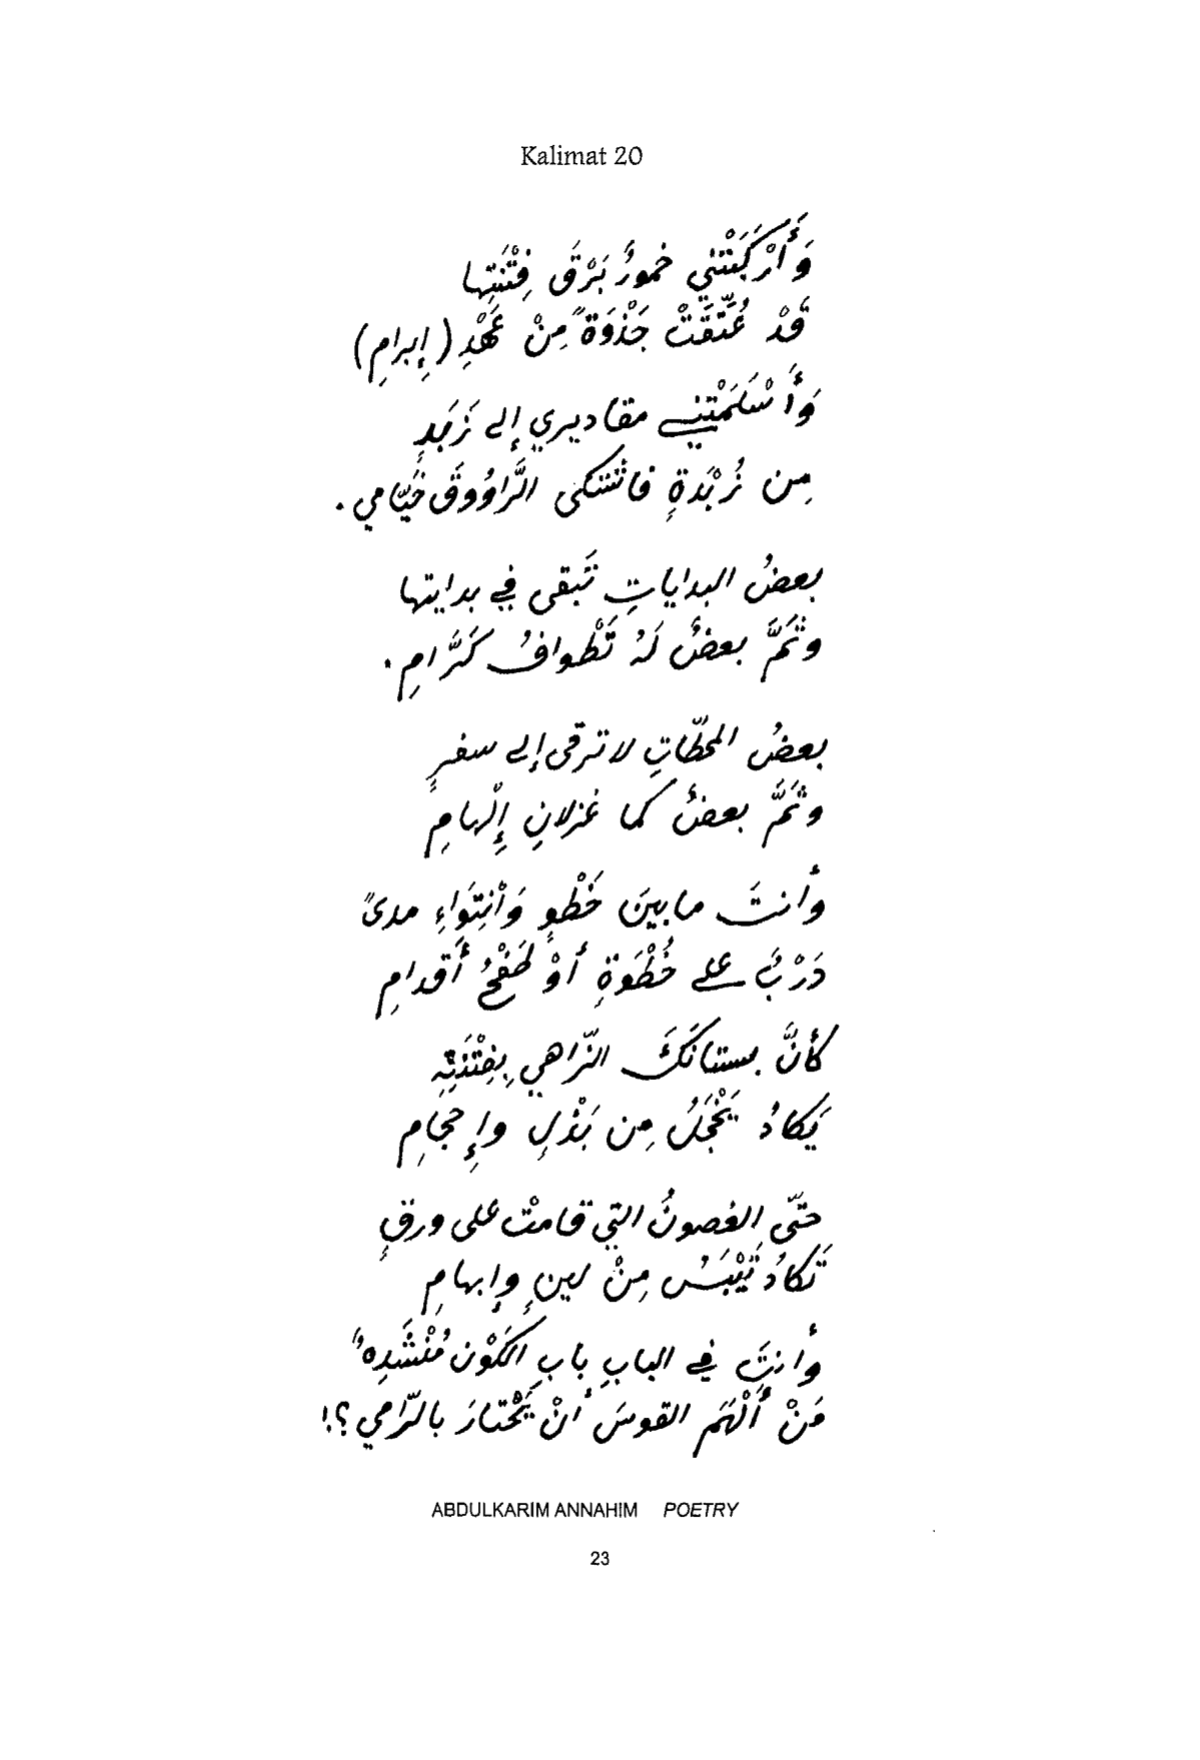 Kalimat 20
وَأَرْكَبَتْني خمورٌ بَرْقَ فِتْنَتِها
قَدْ عُتِّقَتْ جَذْوَةً مِنْ عَهْدِ (إبرامِ)
وَأَسْلَمَتْني مقاديري إلى زَبَدٍ
مِن زُبْدَةٍ فاشتكى الرَّاوُوقَ خَيّامي.
بعضُ البداياتِ تَبقى في بدايتها
وثَمَّ بعضٌ لَهُ تَطْوافُ كَرَّامِ.
بعضُ المحطّاتِ لا ترقى إلى سفرٍ
وثَمَّ بعضٌ كما غزلانِ إلْهامِ
وأنتَ ما بينَ خَطْوٍ وَانْتِوَاءِ مدىً
دَرْبٌ على خُطْوَةٍ أوْ لَفْحُ أَقدامِ
كأنَّ بستانَكَ الزّاهي بِفِتْنَتِهِ
يَكادُ يَخْجَلُ مِن بَذْلٍ وإحجامِ
حتّى الغصونُ التي قامتْ على ورقٍ
تَكادُ تَيْبَسُ مِنْ لينٍ وإبهامِ
وأنتَ في البابِ بابِ الكَوْن مُنْشَدِهٌ
مَنْ أَلْهَمَ القوسَ أنْ يَحْتارَ بالرّامي؟!
ABDULKARIM ANNAHIM POETRY
23